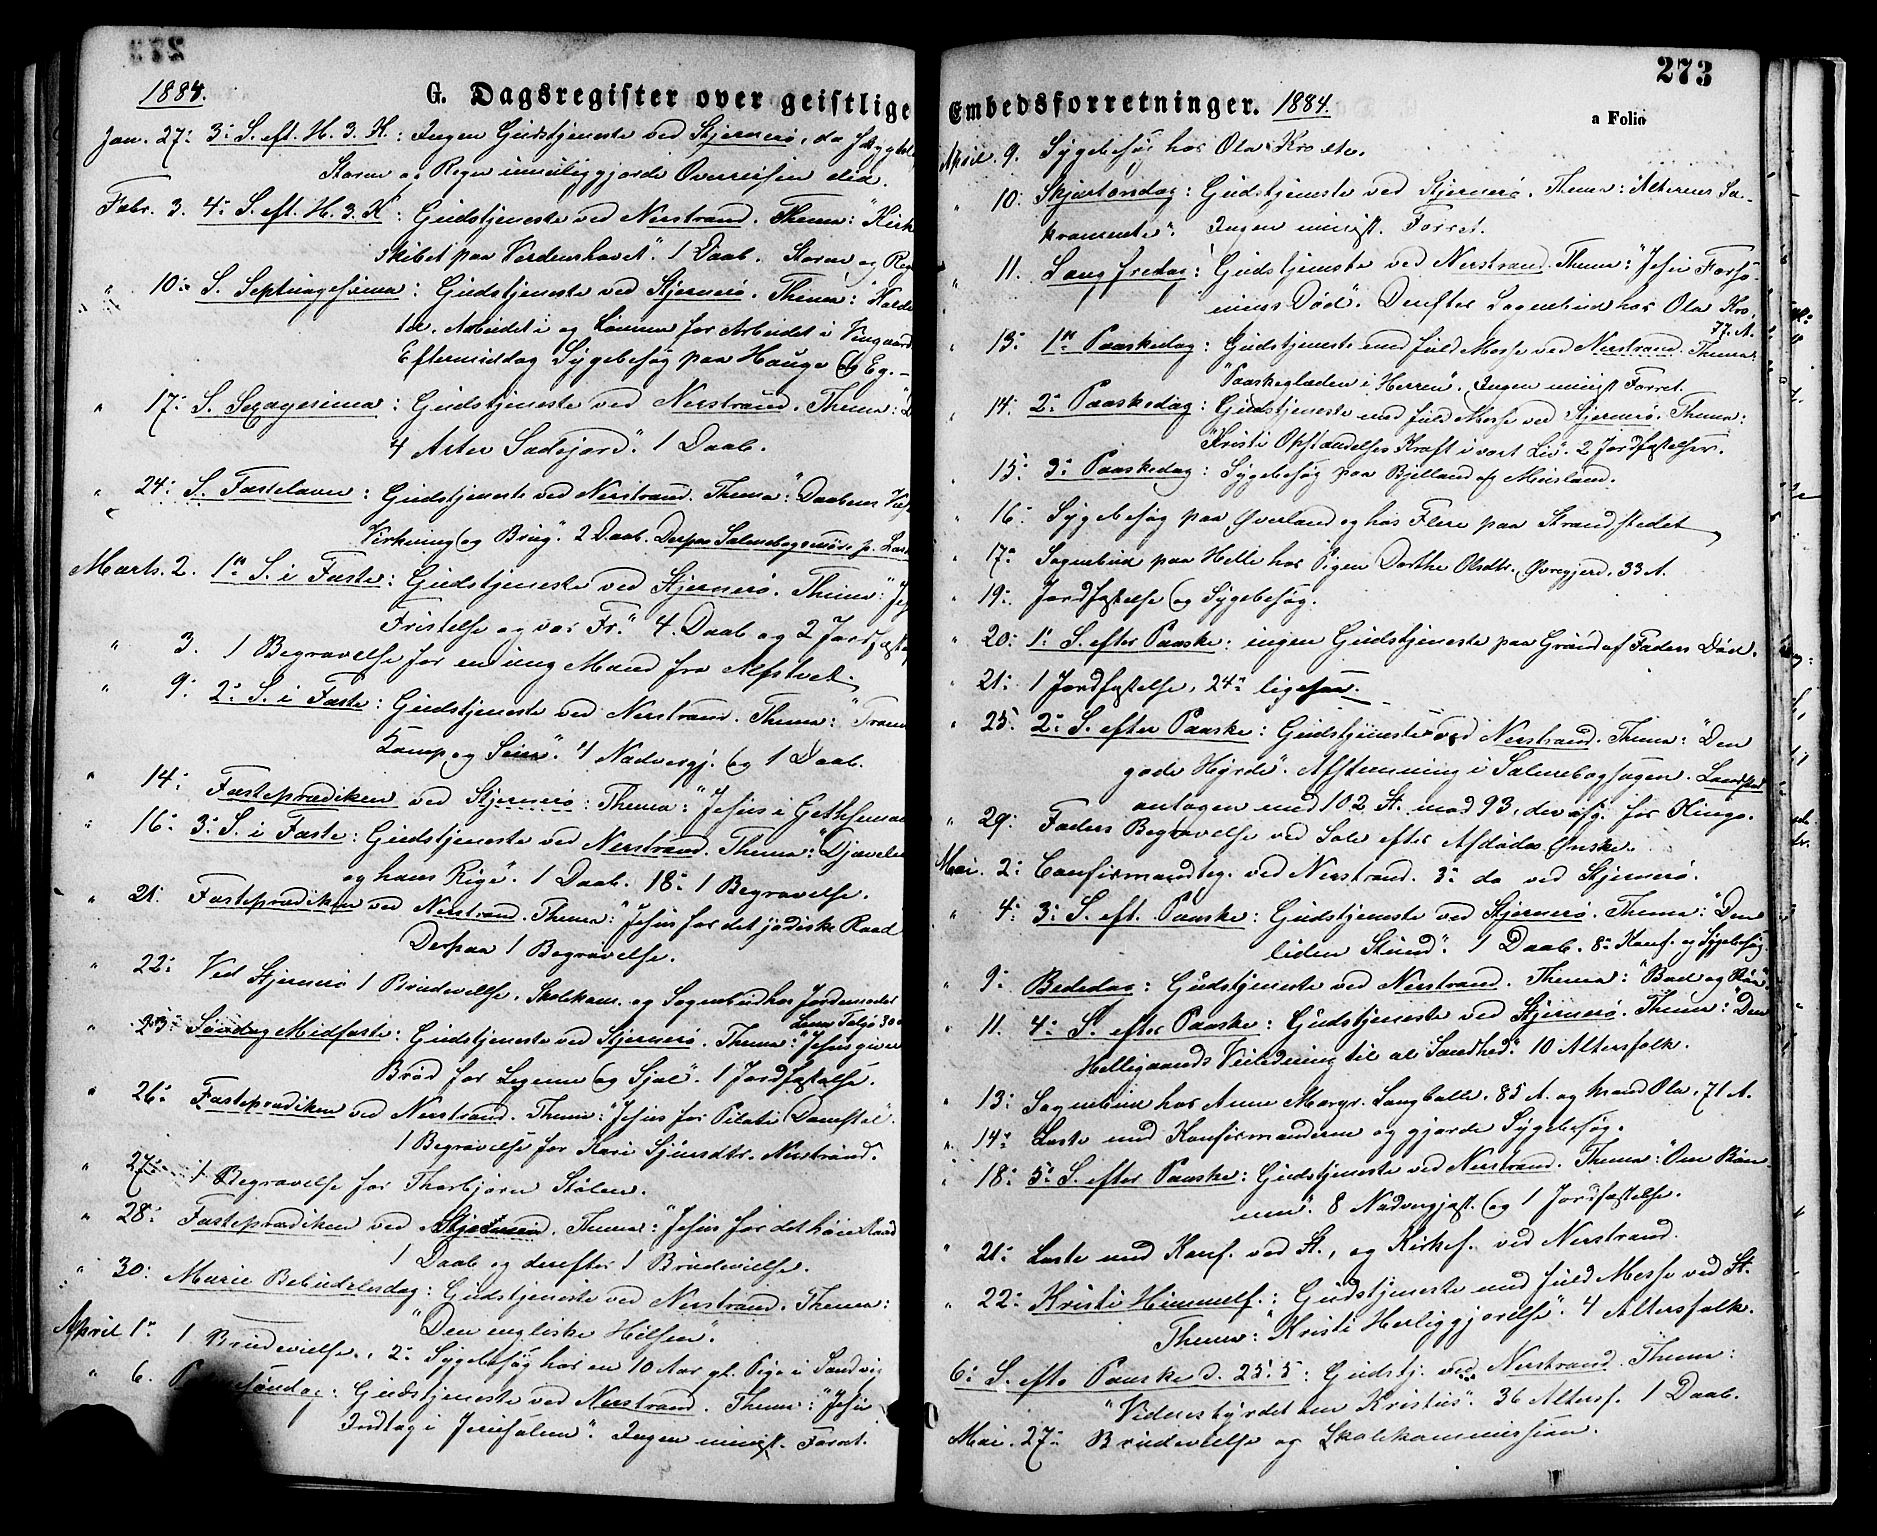 273
1884.
G. Dagsregister over geistlige
Jan. 27: 3: S. eft. H. 3. K: Ingen Gudstjeneste ved Stjernerø, da
Storm og Regn umuliggjorde Overreisen did.
Febr. 3. 4: S. eft. H. 3. K: Gudstjeneste ved Nerstrand. Thema: "Kirke
skibet paa Verdenshavet". 1 Daab. Storm og Regn
" 10: S. Septuagesima: Gudstjeneste ved Stjernerø. Thema: "Kaldel
Arbeidet i og Lønnen for Arbeidet i Vingaard
Eftermiddag Sygebesøg paa Hauge og Eg. –
" 17: S. Sexagesima: Gudstjeneste ved Nerstrand. Thema: "D
4 Arter Sædejord". 1 Daab.
" 24: S. Fastelavn: Gudstjeneste ved Nerstrand. Thema: "Daabens
Virkning og Brug". 2 Daab.
Marts. 2. 1ste S. i Faste: Gudstjeneste ved Stjernerø. Thema: "Jes
Fristelse og vor Fr." 4 Daab og 2 Jordfæst
" 3. 1 Begravelse for en ung Mand fra
" 9: 2: S. i Faste: Gudstjeneste ved Nerstrand. Thema: "Troens
Kamp og Seier". 4 Nadvergj. og 1 Daab.
" 14: Fasteprædiken ved Stjernerø: Thema: "Jesus i Gethsemane
" 16: 3: S. i Faste: Gudstjeneste ved Nerstrand. Thema: "Djævelen
og hans Rige". 1 Daab. 18: 1 Begravelse.
" 21: Fasteprædiken ved Nerstrand. Thema: "Jesus for det jødiske Raad
Derpaa 1 Begravelse.
" 22: Ved Stjernerø 1 Brudevielse, Skolekom. og Sognebud hos Jordemoder
Lene Talgø 30
" 23: Søndag Midfaste: Gudstjeneste ved Stjernerø. Thema: "Jesus giver
Brød for Legeme og Sjæl". 1 Jordfæstelse.
" 26: Fasteprædiken ved Nerstrand. Thema: "Jesus for Pilati Domstol".
1 Begravelse for Kari Sjursdtr. Nerstrand.
" 27: 1 Begravelse for Thorbjørn Stølen.
" 28: Fasteprædiken ved Stjernerø. Thema: "Jesus for det høie Raad
1 Daab og derefter 1 Brudevielse.
" 30: Mariæ Bebudelsesdag: Gudstjeneste ved Nerstrand. Thema:
"Den engelske Hilsen".
April 1: 1 Brudevielse., 2: Sygebesøg hos en 10 Aar gl. Pige i Sandvig
" 6. Palmesøndag: Gudstjeneste ved Nerstrand. Thema: "Jesu
Indtog i Jerusalem". Ingen minist. Forret.
273
Embedsforretninger. 1884.
a Folio
April. 9. Sygebesøg hos Ola
" 10: Skjærtorsdag: Gudstjeneste ved Stjernerø. Thema: "Alterens Sa-
kramente". Ingen minist. Forret.
" 11. Langfredag: Gudstjeneste ved Nerstrand. Thema: "Jesu Forso-
nings Død". Derefter Sognebud hos Ola
77. A.
" 13: 1ste Paaskedag: Gudstjeneste med fuld Messe ved Nerstrand. Thema:
"Paaskeglæden i Herren". Ingen minist Forret.
" 14: 2: Paaskedag: Gudstjeneste med fuld Messe ved Stjernerø. Thema:
"Kristi Opstandelses Kraft i vort Liv". 2 Jordfæstelser.
" 15: 3: Paaskedag: Sygebesøg paa Bjelland af
" 16: Sygebesøg paa Øverland og hos Flere paa Strandstedet
" 17: Sognebud paa Helle hos Pigen Dorthe Olsdtr. Øvregjerd. 33 A.
" 19: Jordfæstelse og Sygebesøg.
" 20: 1: S. efter Paaske: ingen Gudstjeneste paa Grund af Faders Død.
" 21: 1 Jordfæstelse, 24: ligesaa.
" 25: 2: S. efter Paaske: Gudstjeneste ved Nerstrand. Thema: "Den
gode Hyrde". Afstemning i Salmebogsagen. Landstad
antagen med 102 St. mod 93, der afg. for Kingo.
" 29: Faders Begravelse ved Sole efter Afdødes Ønske.
Mai. 2: Confirmandteg. ved Nerstrand. 3: do ved Stjernerø.
" 4: 3: S. eft. Paaske: Gudstjeneste ved Stjernerø. Thema: "Den
liden Stund". 1 Daab. 8: Konf. og Sygebesøg.
" 9: Bededag: Gudstjeneste ved Nerstrand. Thema: "Bod og Bøn".
" 11. 4: S. efter Paaske: Gudstjeneste ved Stjernerø. Thema: "Den
Helligaands Veiledning til al Sandhed". 10 Altersfolk.
" 13: Sognebud hos Anne Margr. Langballe. 85 A. og mand Ola, 71 A.
" 14: Læste med Konfirmanderne og gjorde Sygebesøg.
" 18: 5: S. efter Paaske: Gudstjeneste ved Nerstrand. Thema: "Om Bøn-
nen". 8 Nadvergjæst. og 1 Jordfæstelse.
" 21: Læste med Konf. ved St., og Kirkef. ved Nerstrand.
" 22: Kristi Himmelf.: Gudstjeneste med fuld Messe ved St.
Thema: "Kristi Herliggjørelse". 4 Altersfolk.
6: S. eft. Paaske d. 25: 5: Gudstj. ved Nerstrand. Thema:
"Vidnesbyrdet om Kristus". 36 Altersf. 1 Daab.
Mai. 27: Brudevielse og Skolekommission.